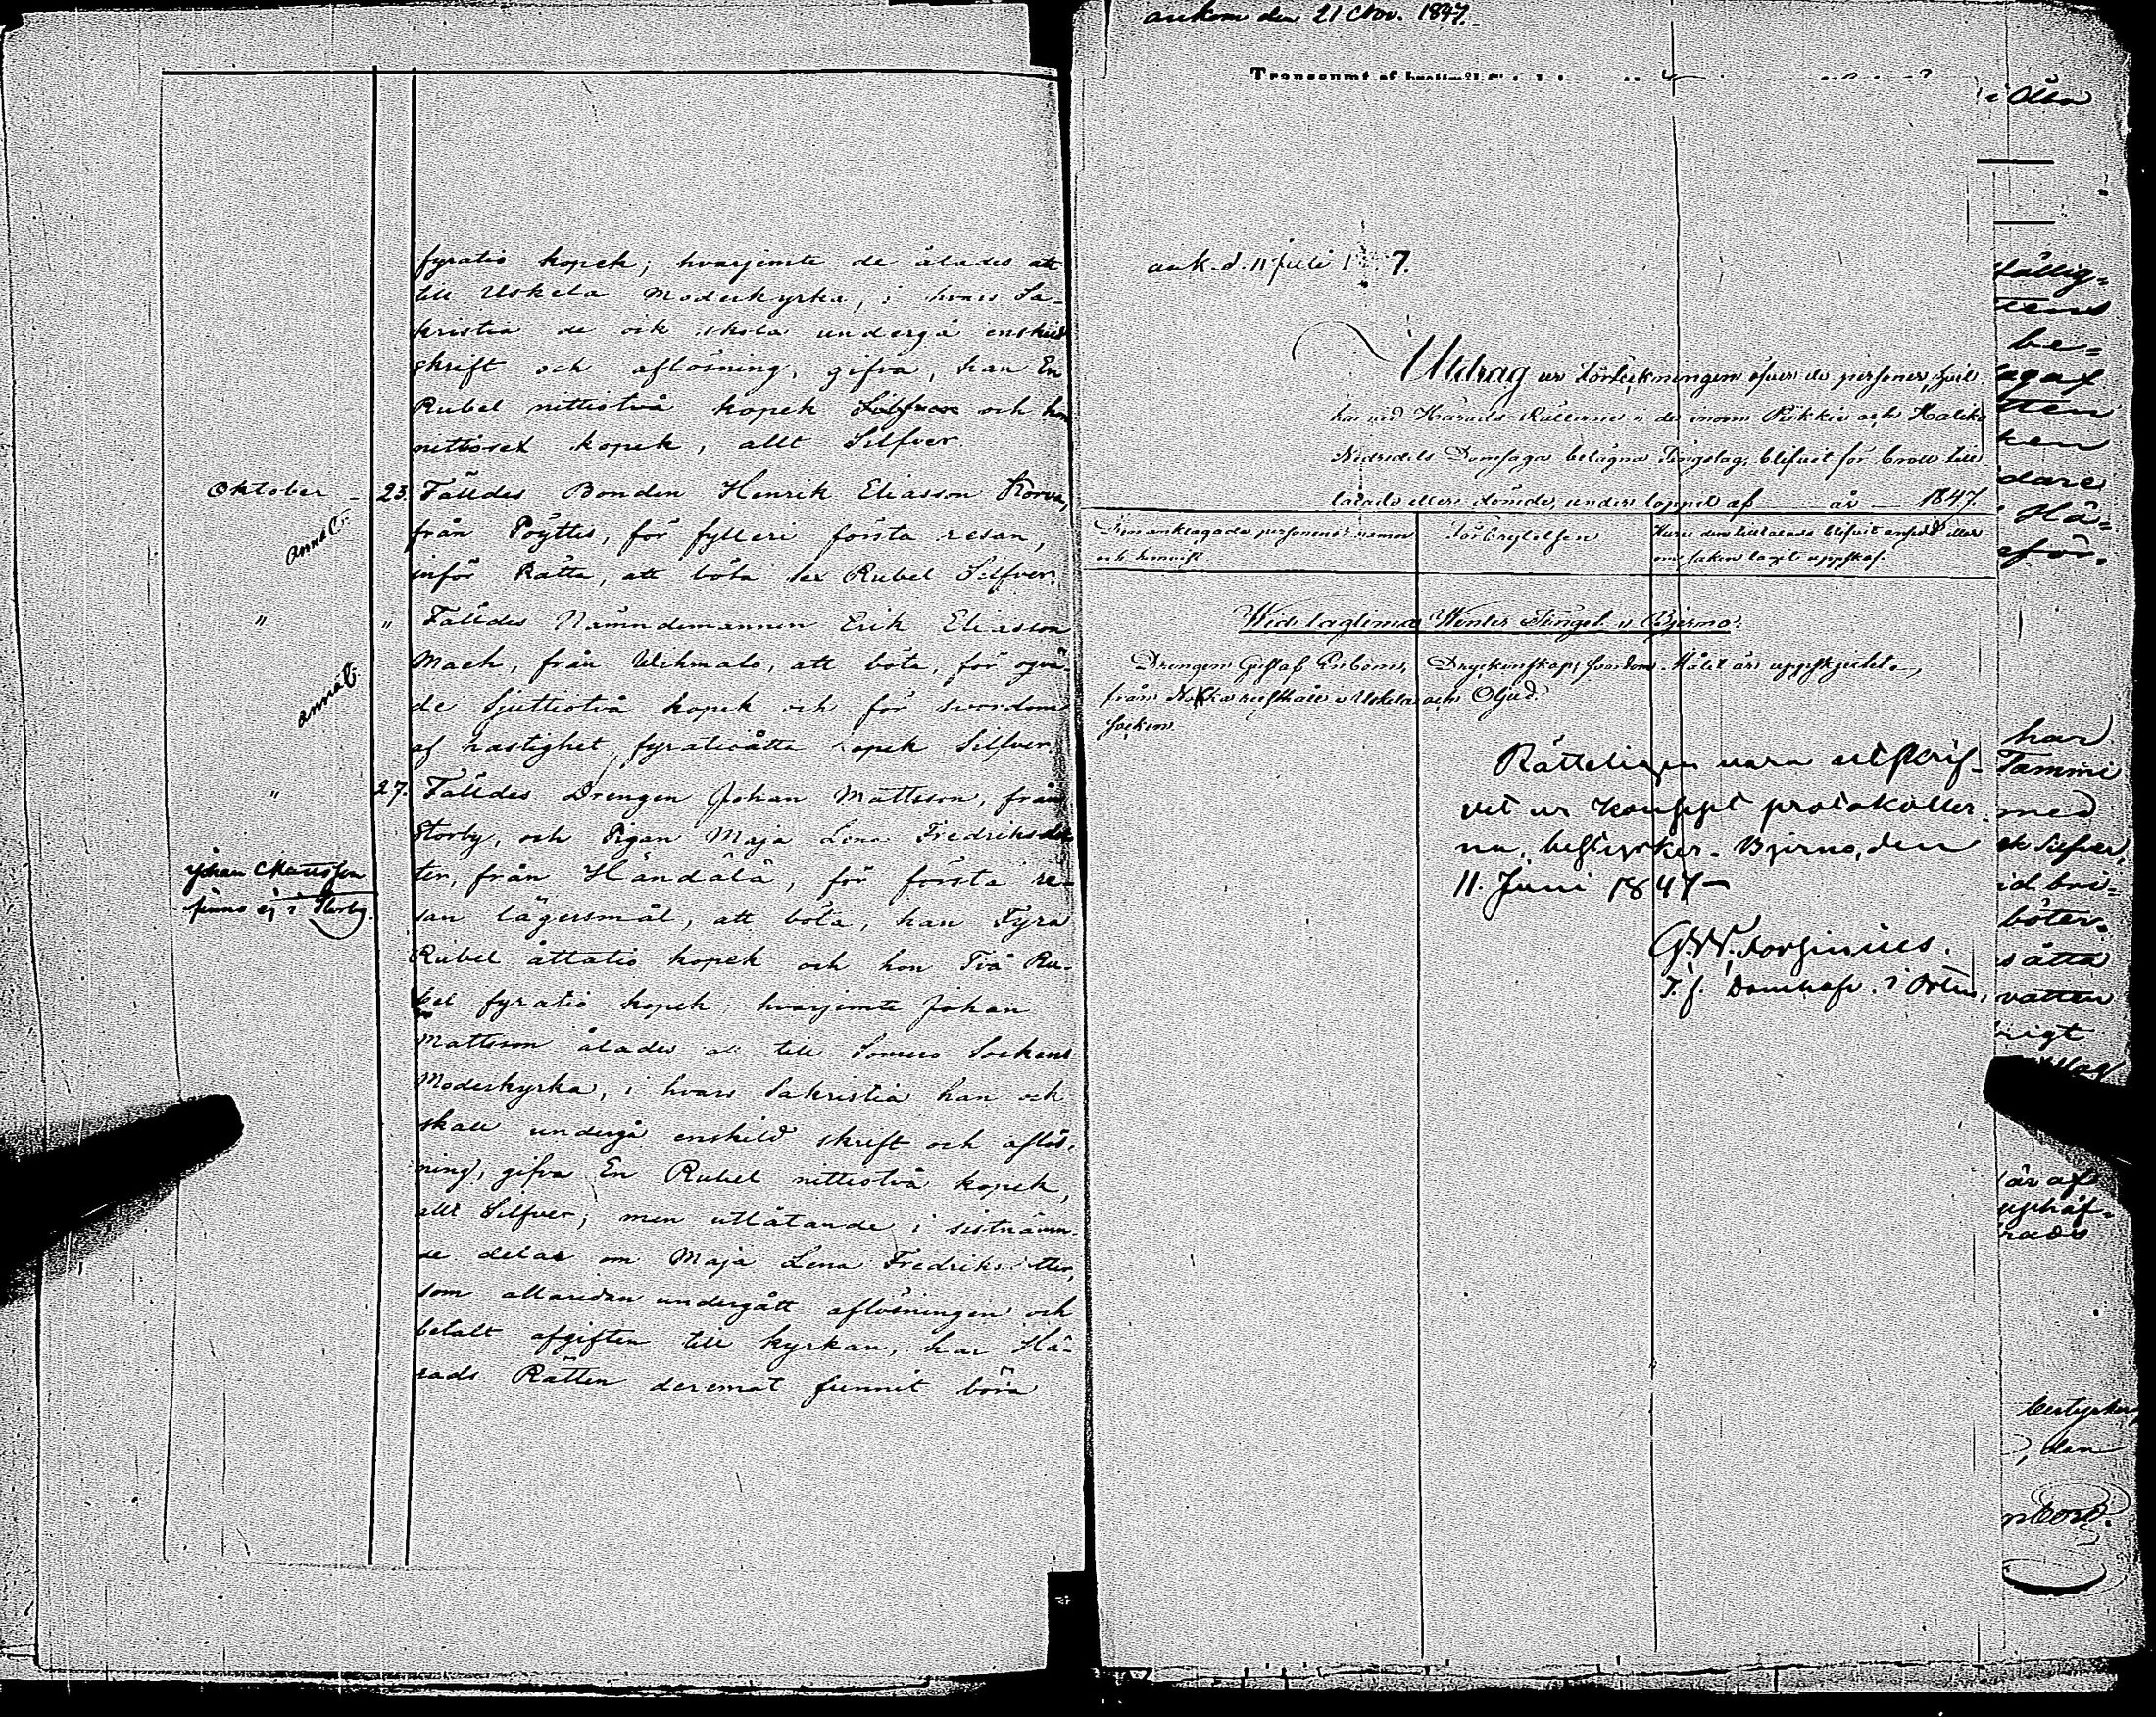 fyratio kopek; hvarjemte de ålades att
till Uskela Moderkyrka, i hvars Sa-
kristia de ock skola undergå enskild
skrift och aflösning, gifva, han En
Rubel nittiotvå kopek Silfver och hon
nittiosex kopek, allt Silfver.
Oktober - 23. Fälldes Bonden Henrik Eliasson Korva,
anmält.
från Pöyttis, för fylleri första resan,
inför Rätta, att böta sex Rubel Silfver.
" " Fälldes Nämndemannen Erik Eliasson
Mack, från Uihmalo, att böta, för oqvä-
anmält
de Sjuttiotvå kopek och för svordom
af hastighet, fyratioåtta kopek Silfver.
" 27. Fälldes Drengen Johan Mattsson, från
Storby, och Pigan Maja Lena Fredriksdot-
Johan Mattsson
finns ej i Storby.
ter, från Händälä, för första re-
san lägersmål, att böta, han Fyra
Rubel åttatio kopek och hon Två Ru-
bel fyratio kopek, hvarjemte Johan
Mattsson ålades att till Somero Sockens
Moderkyrka, i hvars Sakristia han ock
skall undergå enskild skrift och aflös-
ning, gifva En Rubel nittiotvå kopek,
allt Silfver; men utlåtande i sistnämn-
de delar om Maja Lena Fredriksdotter,
som allaredan undergått aflösningen och
betalt afgiften till kyrkan, har Hä-
rads Rätten deremot funnit böra
ankom den 21 Nov. 1847.
Transsumt af
ank. d. 11 Juli 1847.
Utdrag ur Förteckningen öfver de personer, hvil-
ka vid Härads Rätterne i de inom Pikkie och Haliko
Nedredels Domsaga belägna Tingslag, blifvit för brott till-
talade eller dömde, under loppet af år 1847.
Den anklagade personens namn
och hemvist
Förbrytelsen
Huru den tilltalade blifvit ansedd eller
om saken tagit uppskof.
Wid lagtima Winter Tinget i Bjerno.
Drengen Gustaf Enbom, Dryckenskap, svordom Målet är uppskjutet.
från Nokka rusthåll i Uskela och Oljud.
socken.
Rätteligen vara utskrif-
vet ur koncept protokoller-
na, bestyrker. Bjerno, den
11. Juni 1847
G. W.
T. f. Domhafv. i Orten.